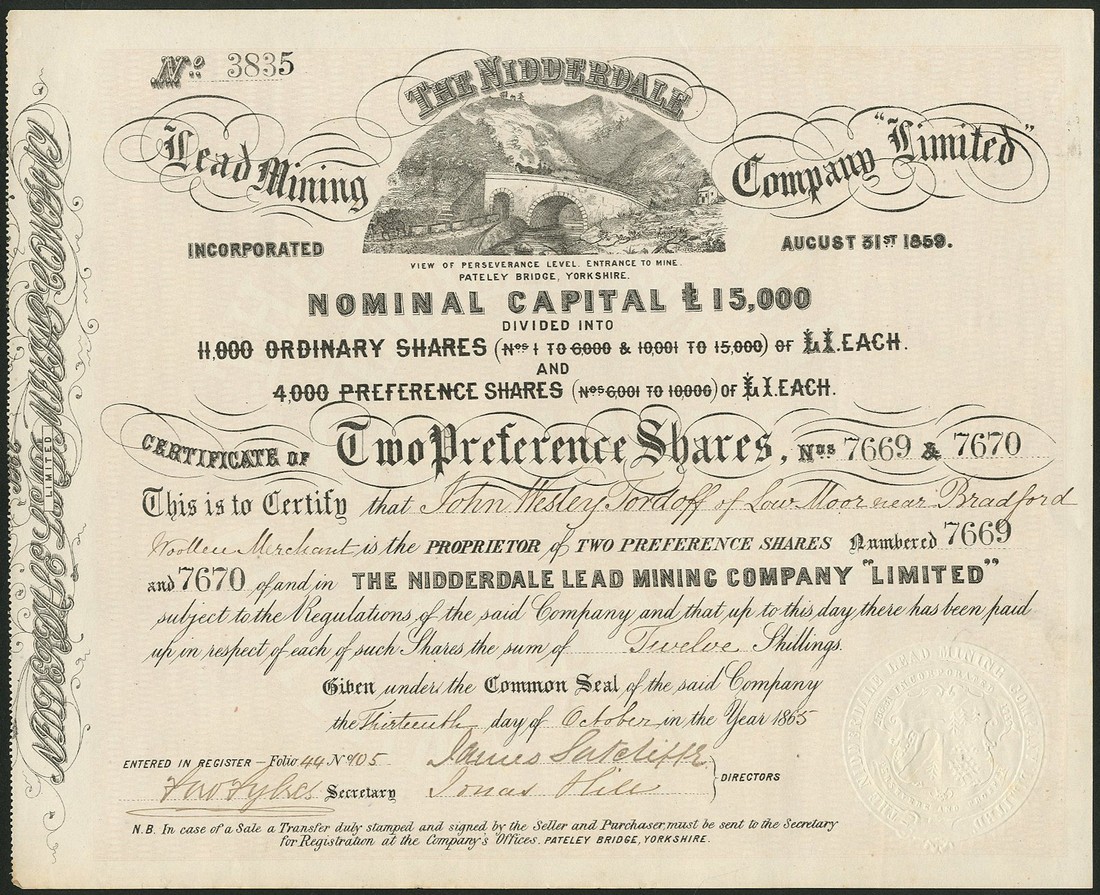 No. 3835
THE NIDDERDALE
Lead Mining Company "Limited"
INCORPORATED AUGUST 31ST 1859.
VIEW OF PERSEVERANCE LEVEL. ENTRANCE TO MINE.
PATELEY BRIDGE, YORKSHIRE.
NOMINAL CAPITAL £15,000
DIVIDED INTO
11,000 ORDINARY SHARES (Nos 1 TO 6,000 & 10,001 TO 15,000) OF £1. EACH.
AND
4,000 PREFERENCE SHARES (Nos 6,001 TO 10,000) OF £1. EACH.
CERTIFICATE OF Two Preference Shares, Nos 7669 & 7670
This is to Certify that John Wesley Tordoff of Low Moor near Bradford
Woollen Merchant is the PROPRIETOR of TWO PREFERENCE SHARES Numbered 7669
and 7670 of and in THE NIDDERDALE LEAD MINING COMPANY "LIMITED"
subject to the Regulations of the said Company and that up to this day there has been paid
up in respect of each of such Shares the sum of Twelve Shillings.
Given under the Common Seal of the said Company
the Thirteenth day of October in the Year 1865
ENTERED IN REGISTER - Folio 44 No 105 James Sutcliffe
Secretary Jonas Hill DIRECTORS
N.B. In case of a Sale a Transfer duly stamped and signed by the Seller and Purchaser, must be sent to the Secretary
for Registration at the Company's Offices. PATELEY BRIDGE, YORKSHIRE.
NIDDERDALE LEAD MINING COMPANY
LIMITED
THE NIDDERDALE LEAD MINING COMPANY LIMITED